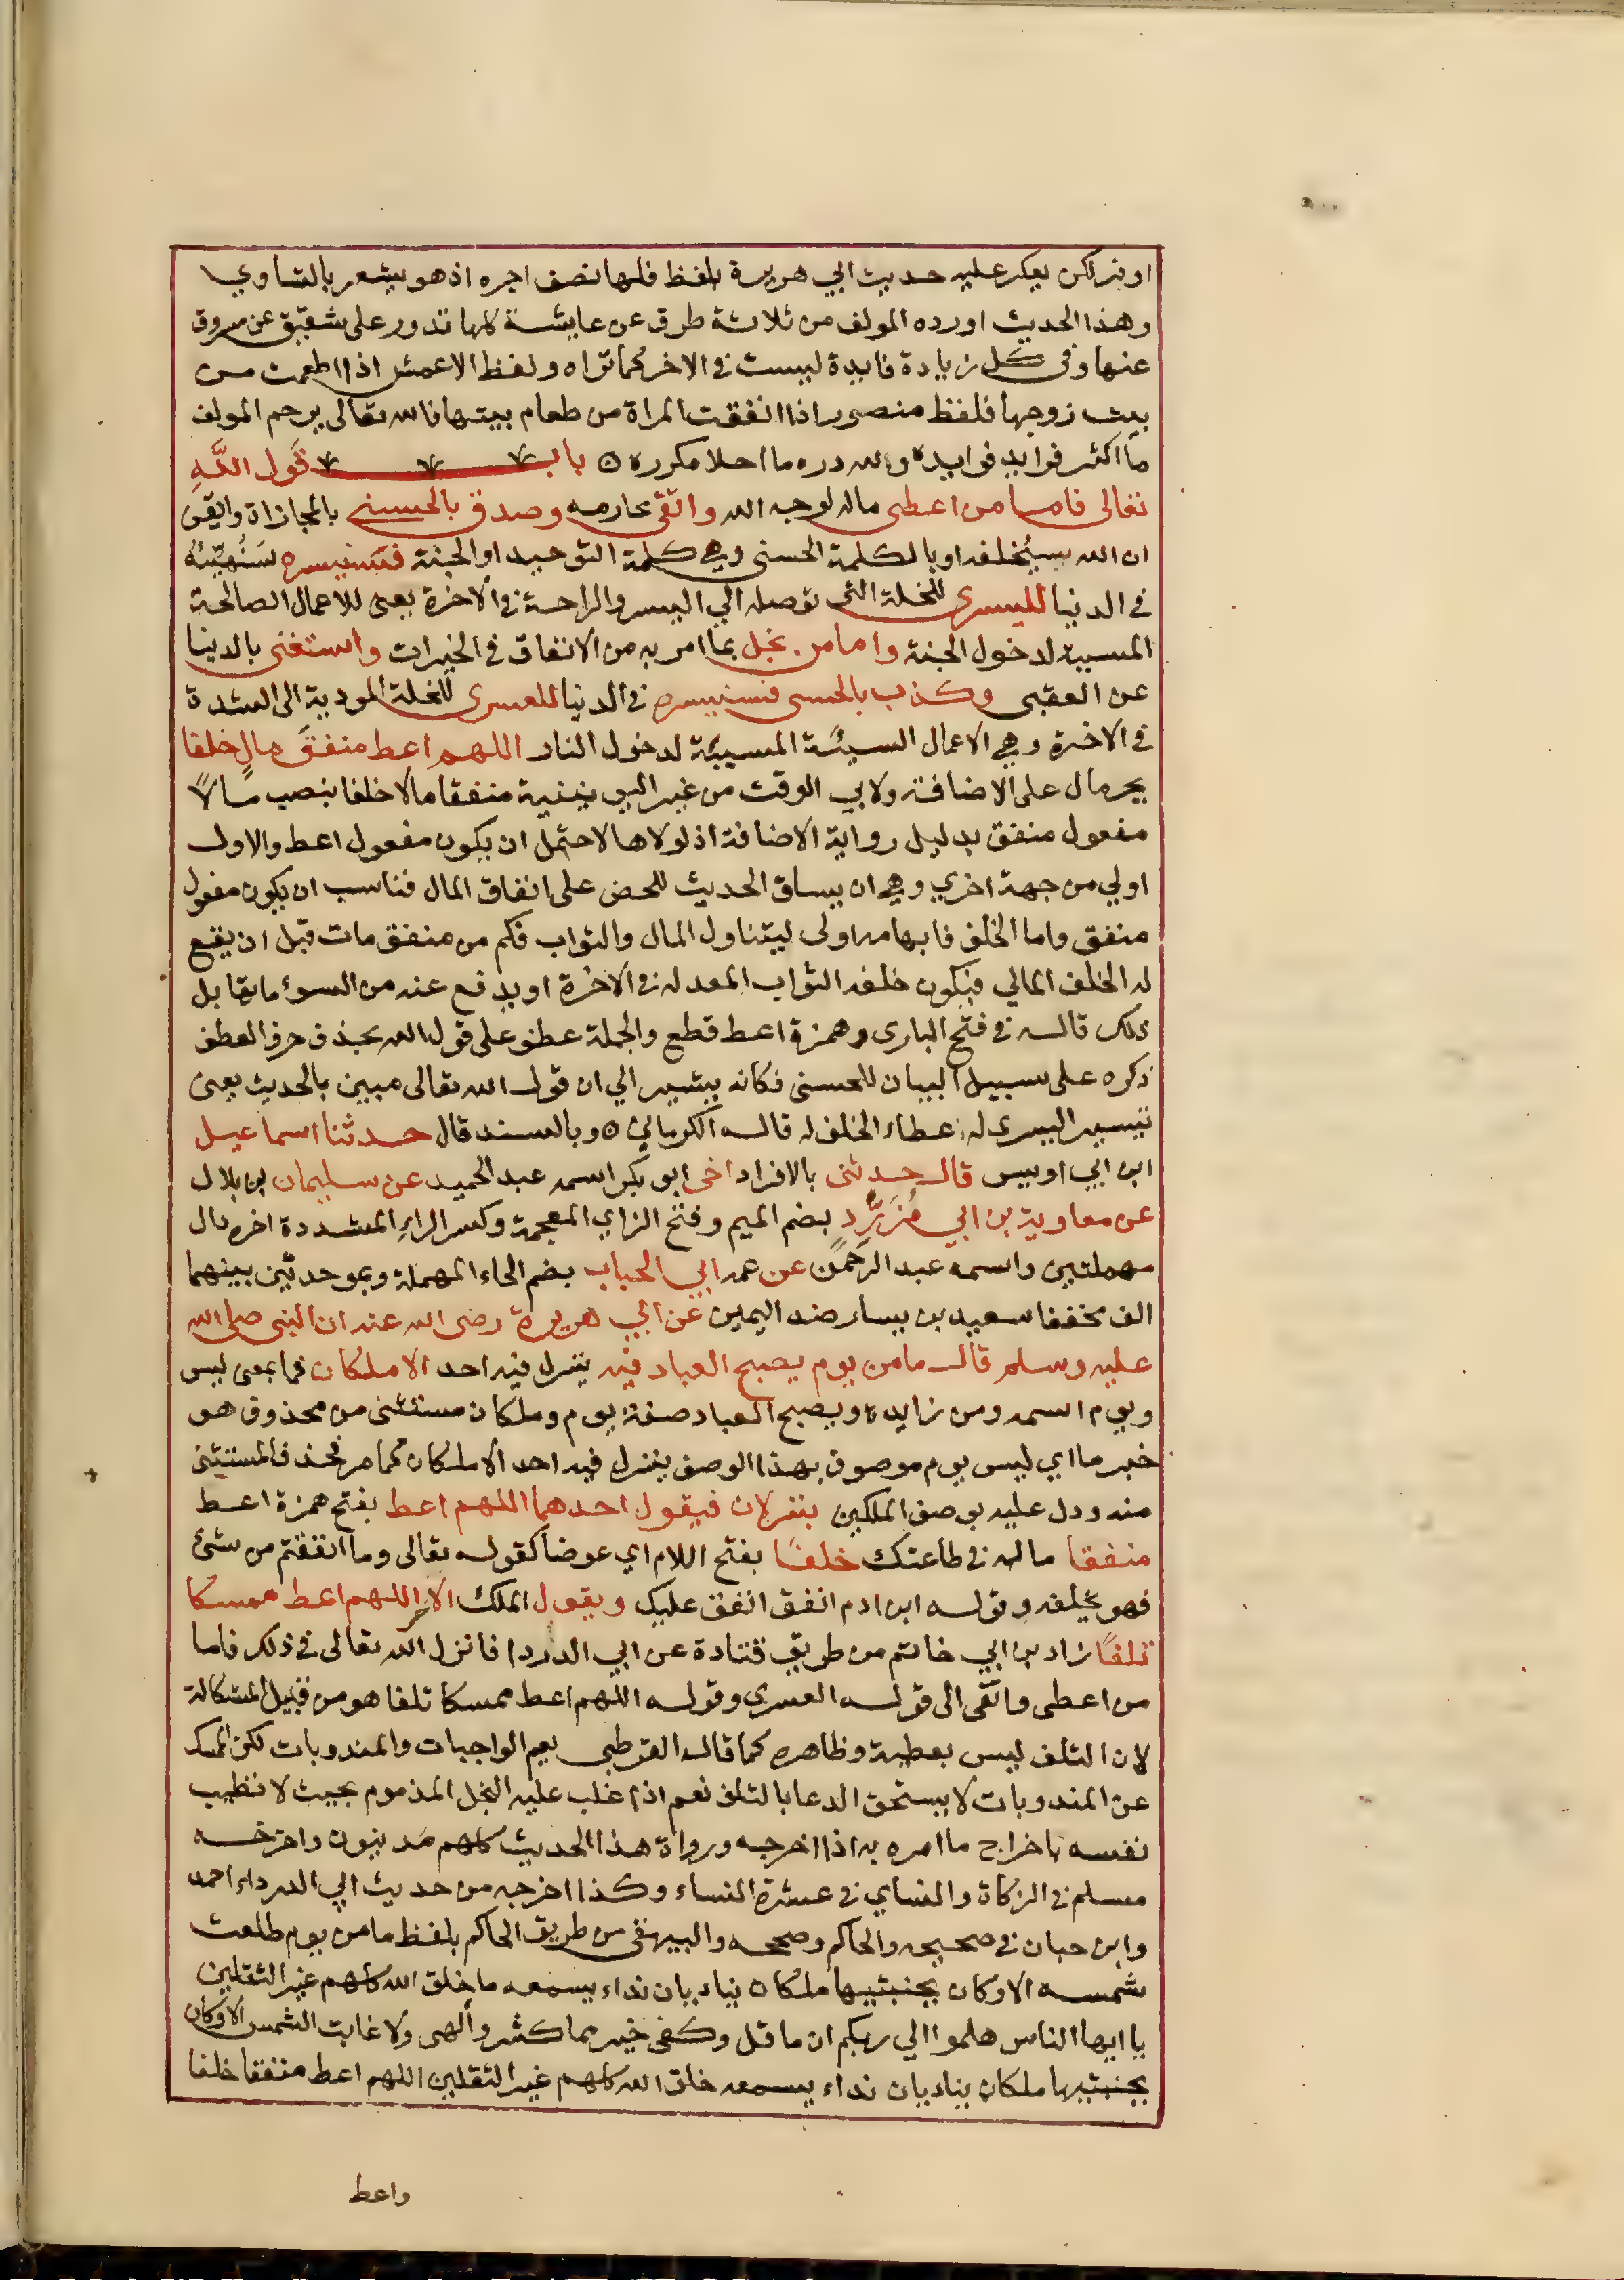 اوفر لكن يعكر عليه حديث ابي هريرة بلفظ فلها نصف اجره اذ هو يشعر بالتساوي
وهذا الحديث اورده المولف من ثلاثة طرق عن عايشة كلها تدور على شقيق عن مسروق
عنها وفي كل زيادة فايدة ليست في الاخر كما تراه ولفظ الاعمش اذا اطعمت من
بيت زوجها فلفظ منصور اذا انفقت المراة من طعام بيتها فالله تعالى يرحم المولف
ما اكثر فرايد فوايده ولله دره ما احلا مكرره ٥ باب قَول اللَّهِ
تعالى فاما من اعطى ماله لوجه الله واتقى محارمه وصدق بالحسنى بالمجازاة وايقن
ان الله سيُخلفه او بالكلمة الحسنى وهي كلمة التوحيد او الجنة فسنيسره سَنُهَيِّئُهُ
في الدنيا لليسرى للخلة التي توصله الي اليسر والراحة في الاخرة يعنى للاعمال الصالحة
المسببة لدخول الجنة واما من بخل بما امر به من الانفاق في الخيرات واستغنى بالدينا
عن العقبى وكذب بالحسنى فسنيسره في الدنيا للعسرى للخلة المودية الى الشدة
في الاخرة وهي الاعمال السيئة المسببة لدخول النار اللهم اعط منفقَ مالٍ خلفا
بجر مال على الاضافة ولابي الوقت من غير اليونينية منفقا مالا خلفا بنصب مالاً
مفعول منفق بدليل رواية الاضافة اذ لولاها لاحتمل ان يكون مفعول اعط والاول
اولي من جهة اخري وهي ان يساق الحديث للحض على انفاق المال فناسب ان يكون مفعول
منفق واما الخلف فابهامه اولى ليتناول المال والثواب فكم من منفق مات قبل ان يقع
له الخلف المالي فيكون خلفه الثواب المعد له في الاخرة او يدفع عنه من السوء ما يقابل
ذلك قاله في فتح الباري وهمزة اعط قطع والجملة عطف على قول الله بحذف حرف العطف
ذكره على سبيل البيان للحسنى فكانه يشير الي ان قول الله تعالى مبين بالحديث يعنى
تيسير اليسرى له اعطاء الخلف له قاله الكرماني ٥ وبالسند قال حدثنا اسماعيل
ابن ابي اويس قال حدثنى بالافراد اخى ابو بكر اسمه عبد الحميد عن سليمان بن بلال
عن معاوية بن ابي مُزَرِّدٍ بضم الميم وفتح الزاي المعجمة وكسر الراءِ المشددة اخره دال
مهملتين واسمه عبد الرحمن عن عمه ابي الحباب بضم الحاء المهملة وبموحدتين بينهما
الف مخففا سعيد بن يسار ضد اليمين عن ابي هريرة رضى الله عنه ان النبى صلى الله
عليه وسلم قال ما من يوم يصبح العباد فيه ينزل فيه احد الا ملكان فما بمعنى ليس
ويوم اسمه ومن زايدة ويصبح العباد صفة يوم وملكان مستثنى من محذوف هو
خبر ما اي ليس يوم موصوف بهذا الوصف ينزل فيه احد الا ملكان كما مر فحذف المستثنى
منه ودل عليه بوصف الملكين ينزلان فيقول احدهما اللهم اعط بفتح همزة اعط
منفقا ماله في طاعتك خلفًا بفتح اللام اي عوضا كقوله تعالى وما انفقتم من شئ
فهو يخلفه وقوله ابن ادم انفق انفق عليك ويقول الملك الاخر اللهم اعط ممسكا
تلفًا زاد بن ابي حاتم من طريق قتادة عن ابي الدردا فانزل الله تعالى في ذلك فاما
من اعطى واتقى الى قوله العسرى وقوله اللهم اعط ممسكا تلفا هو من قبيل المشكالة
لان التلف ليس بعطية وظاهره كما قاله القرطبى يعم الواجبات والمندوبات لكن الممسك
عن المندوبات لا يستحق الدعا بالتلف نعم اذا غلب عليه البخل المذموم بحيث لا تطيب
نفسه باخراج ما امره به اذا اخرجه ورواة هذا الحديث كلهم مَدنيون واخرجه
مسلم في الزكاة والنساي في عشرة النساء وكذا اخرجه من حديث ابي الدرداء احمد
وابن حبان في صحيحه والحاكم وصححه والبيهقى من طريق الحاكم بلفظ ما من يوم طلعت
شمسه الا وكان بجنبتيها ملكان يناديان نداء يسمعه ما خلق الله كلهم غير الثقلين
يا ايها الناس هلموا الي ربكم ان ما قل وكفى خير مما كثر وألهى ولا غابت الشمس الا وكان
بجنبتيها ملكان يناديان نداء يسمعه خلق الله كلهم غير الثقلين اللهم اعط منفقا خلفا
واعط